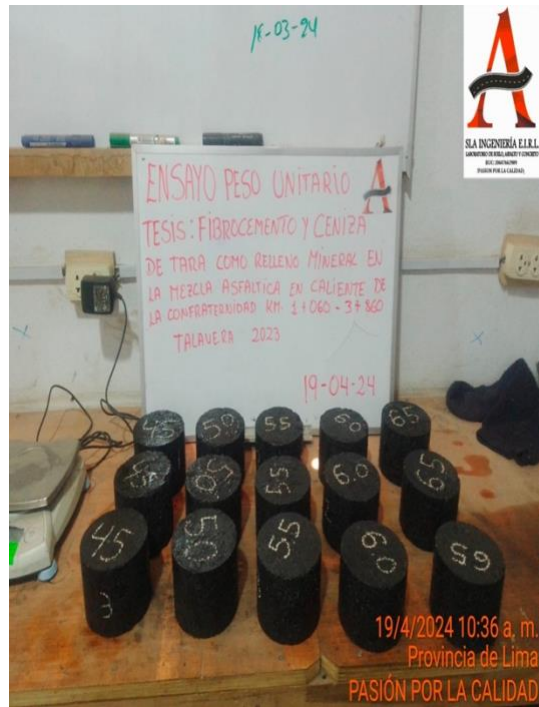 18-03-24
SLA INGENIERÍA E.I.R.L.
LABORATORIO DE SUELO, ASFALTO Y CONCRETO
(PASIÓN POR LA CALIDAD)
ENSAYO PESO UNITARIO A
TESIS: FIBROCEMENTO Y CENIZA
DE TARA COMO RELLENO MINERAL EN
LA MEZCLA ASFÁLTICA EN CALIENTE DE
LA CONFRATERNIDAD KM. 1+060 - 3+860
TALAVERA 2023
19-04-24
45 50 55 60 65
50 55 6.0 65
45 50 55 60 65
3
19/4/2024 10:36 a. m.
Provincia de Lima
PASIÓN POR LA CALIDAD